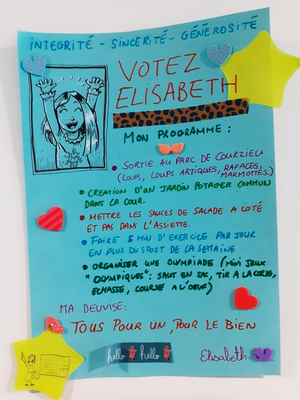 INTEGRITÉ - SINCERITÉ - GÉNÉROSITÉ
VOTEZ
ELISABETH
MON PROGRAMME :
• SORTIE AU PARC DE COURZIEU
(LOUPS, LOUPS ARTIQUES, RAPACES,
MARMOTTES.)
• CREATION D'UN JARDIN POTAGER COMMUN
DANS LA COUR.
• METTRE LES SAUCES DE SALADE A COTÉ
ET PAS DANS L'ASSIETTE.
• FAIRE 5 MN D'EXERCICE PAR JOUR
EN PLUS DU SPORT DE LA SEMAINE
• ORGANISER UNE OLYMPIADE (MINI JEUX
"OLYMPIQUES": SAUT EN SAC, TIR A LA CORDE,
ECHASSE, COURSE A L'OEUF)
MA DEVISE:
TOUS POUR UN, POUR LE BIEN
hello hello
Elisabeth